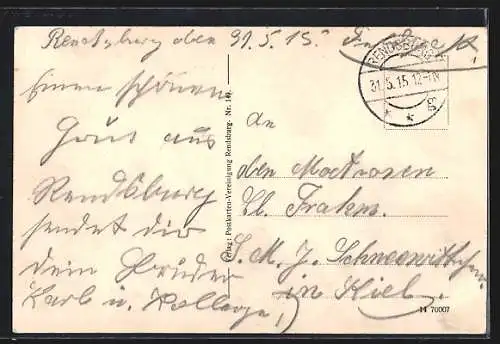 Rendsburg den 31.5.15.
RENDSBURG
31.5.15.12-1N
* * g
Einen schönen
Gruß aus
Rendsburg
sendet dir
dein Bruder
Karl u. Kollege
an
den Matrosen
Cl.
S. M. J. Schneewittchen
in Kiel
Verlag: Postkarten-Vereinigung Rendsburg. Nr. 140.
M 70007